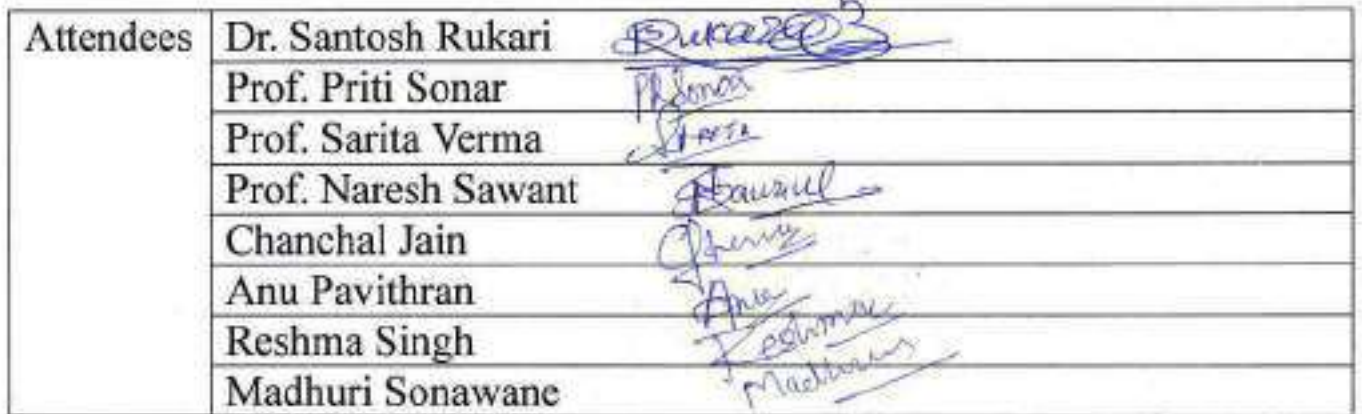 Attendees Dr. Santosh Rukari
Prof. Priti Sonar PRSonar
Prof. Sarita Verma
Prof. Naresh Sawant
Chanchal Jain
Anu Pavithran Anu
Reshma Singh Reshma
Madhuri Sonawane Madhuri